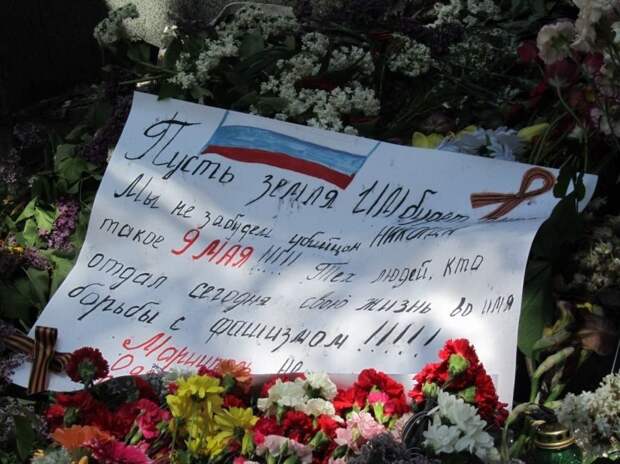 Пусть земля им будет
Мы не забудем убийцам никогда
такое 9 МАЯ!!!! Тех людей, кто
отдал сегодня свою жизнь во имя
борьбы с фашизмом!!!!!
Мариуполь